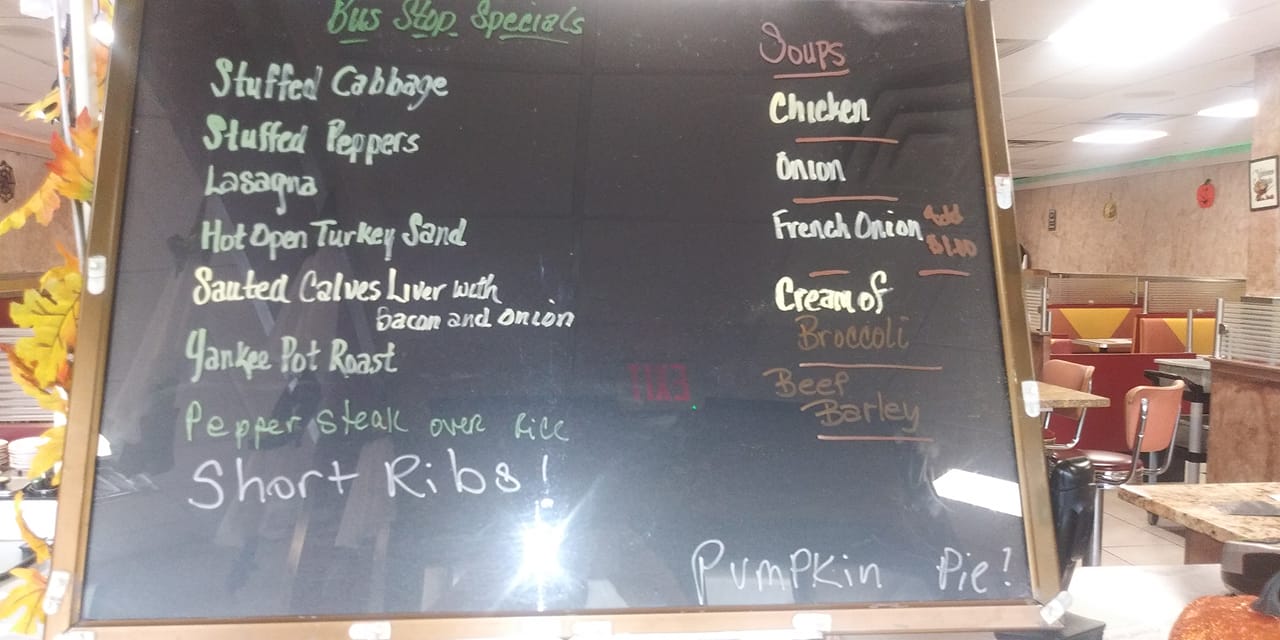 Bus Stop Specials
Stuffed Cabbage
Stuffed Peppers
Lasagna
Hot Open Turkey Sand
Sauted Calves Liver with
Bacon and Onion
Yankee Pot Roast
Pepper steak over Rice
Short Ribs!
Soups
Chicken
Onion
French Onion Add
$1.00
Cream of
Broccoli
Beef
Barley
Pumpkin Pie!